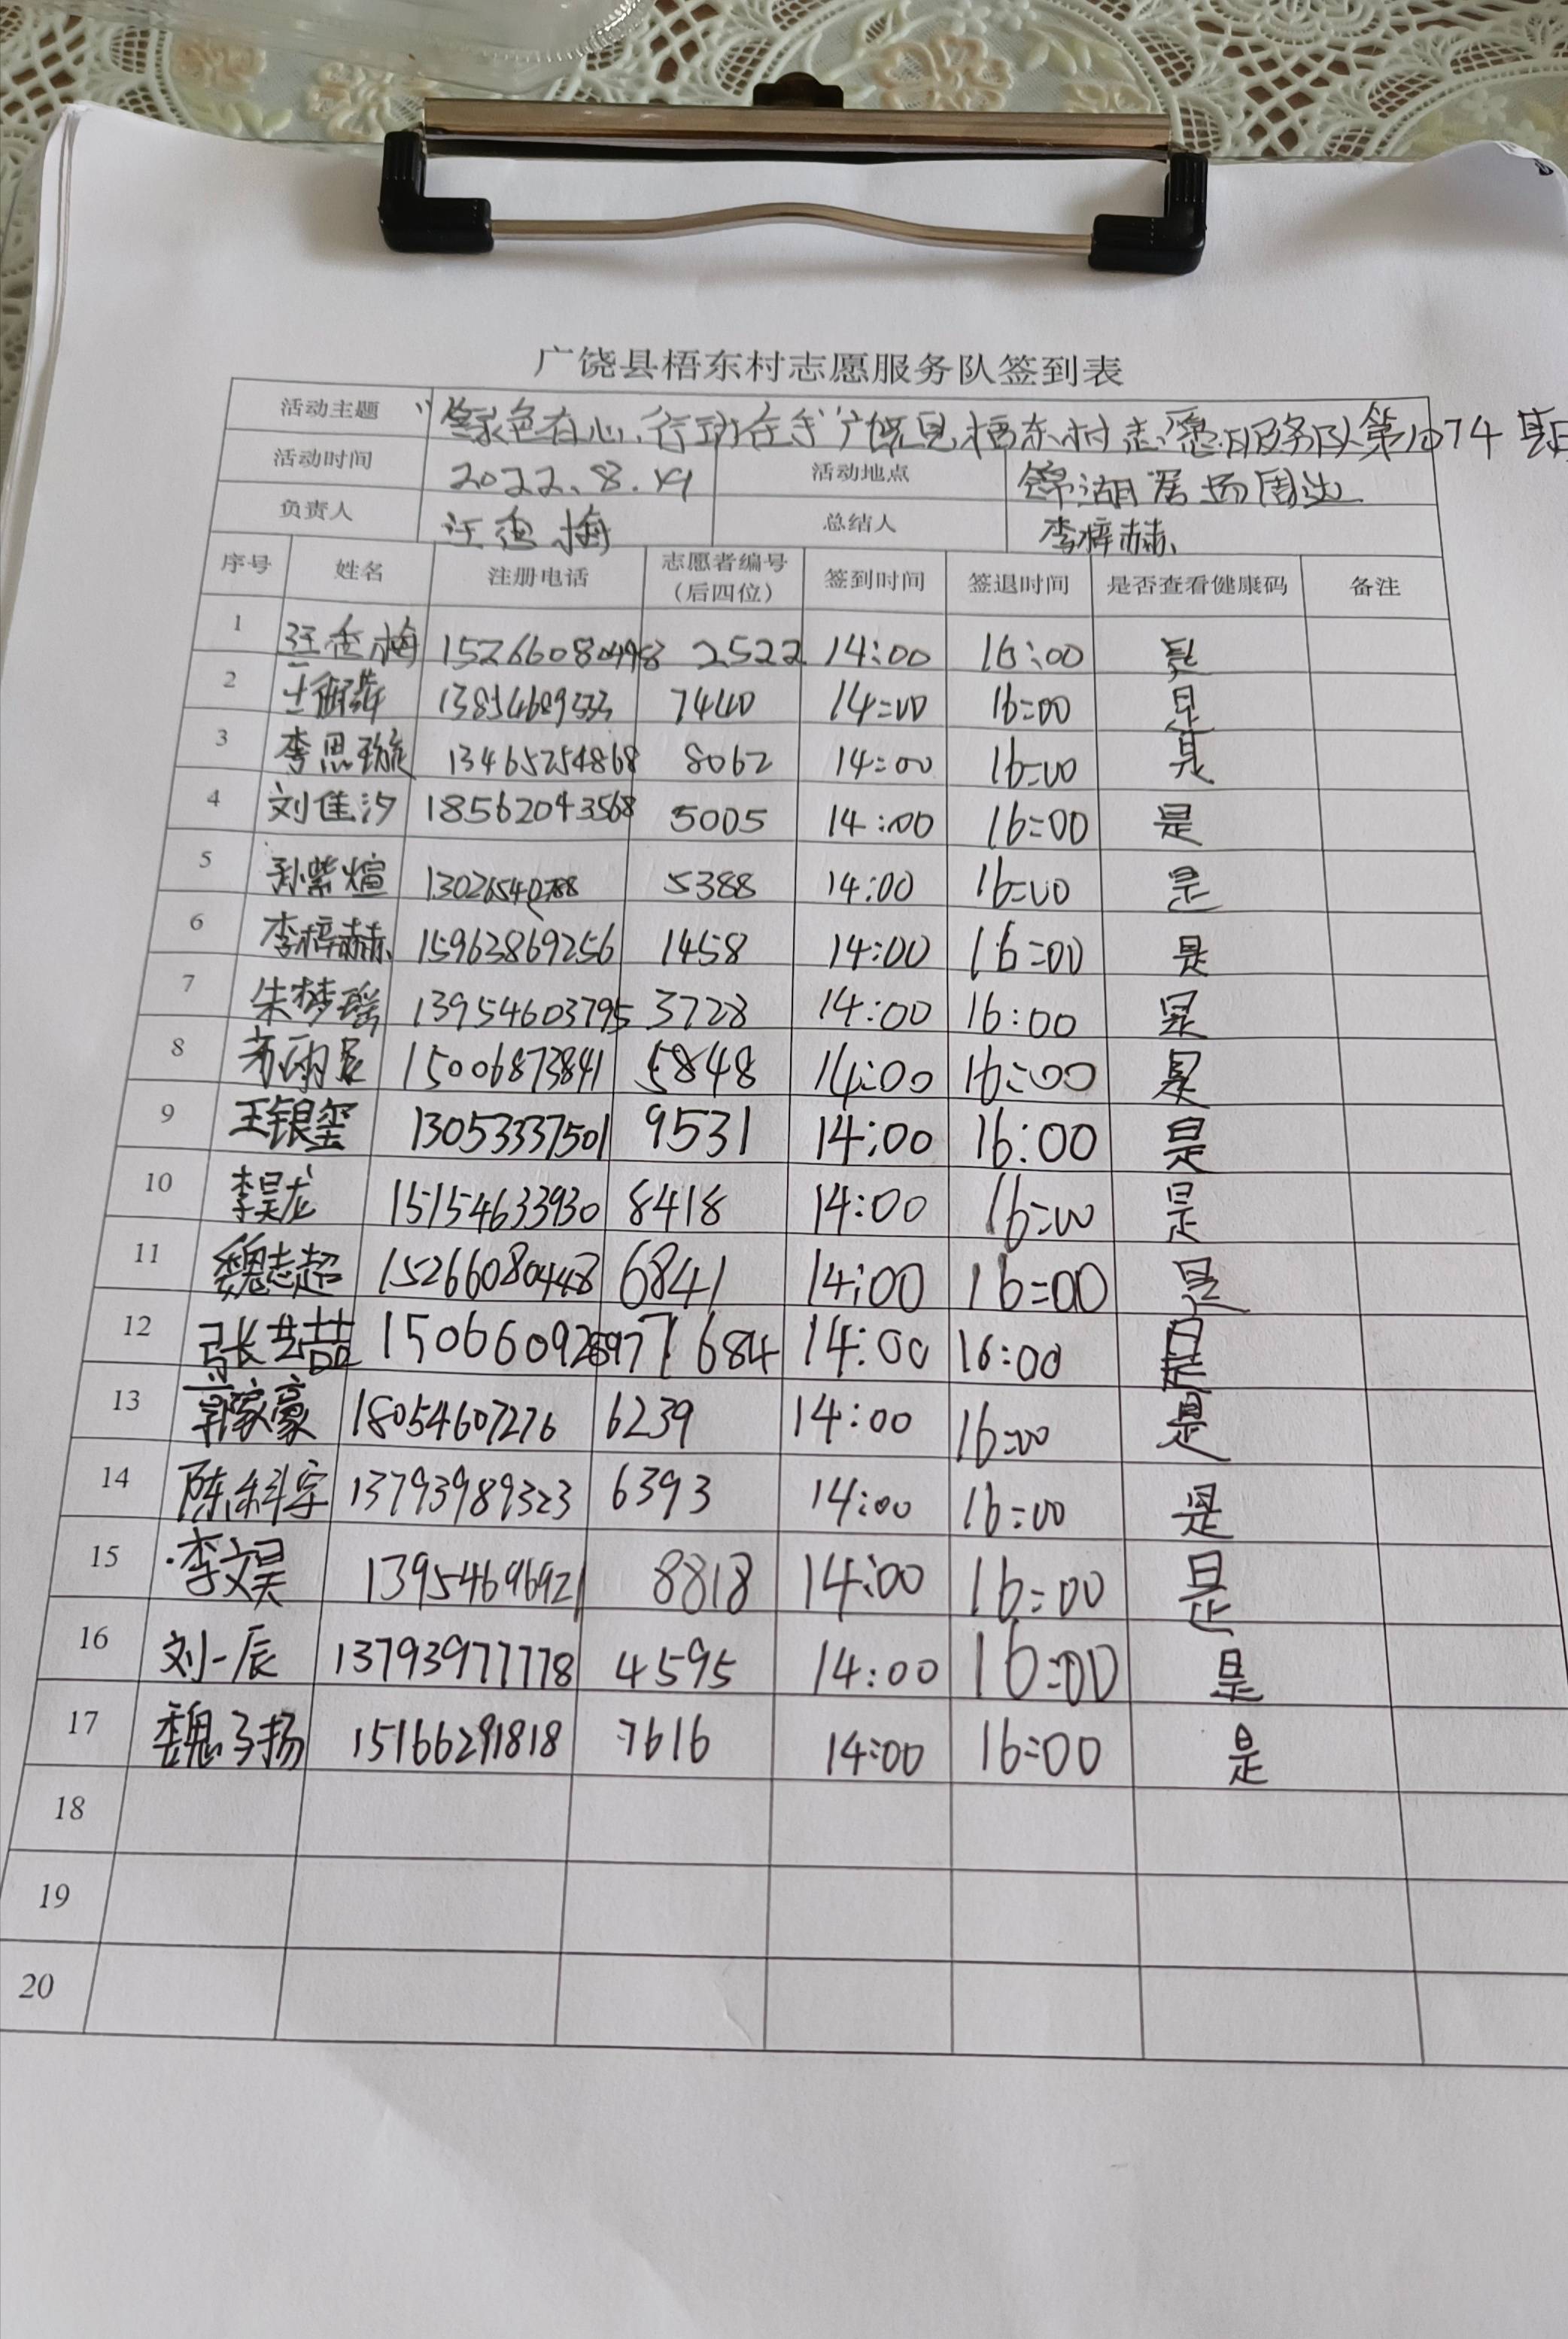 广饶县梧东村志愿服务队签到表
活动主题 "绿色在心,行动在手"广饶县梧东村志愿服务队第1074期
活动时间 2022.8.19 活动地点 锦湖 周边
负责人 汪香梅 总结人 李梓赫
序号 姓名 注册电话 志愿者编号(后四位) 签到时间 签退时间 是否查看健康码 备注
1 汪香梅 2522 14:00 16:00 是
2 7440 14:00 16:00 是
3 李思璇 13465254868 8062 14:00 16:00 是
4 刘佳汐 18562043568 5005 14:00 16:00 是
5 孙紫煊 5388 14:00 16:00 是
6 李梓赫 15963869256 1458 14:00 16:00 是
7 朱梦瑶 13954603795 3728 14:00 16:00 是
8 15006873841 5848 14:00 16:00 是
9 王银玺 13053337501 9531 14:00 16:00 是
10 李昊龙 15154633930 8418 14:00 16:00 是
11 魏志超 15266080448 6841 14:00 16:00 是
12 张喆 1684 14:00 16:00 是
13 郭家豪 18054607276 6239 14:00 16:00 是
14 陈科宇 13793989323 6393 14:00 16:00 是
15 李文昊 13954696921 8818 14:00 16:00 是
16 刘一辰 13793977778 4595 14:00 16:00 是
17 魏子扬 15166291818 7616 14:00 16:00 是
18
19
20